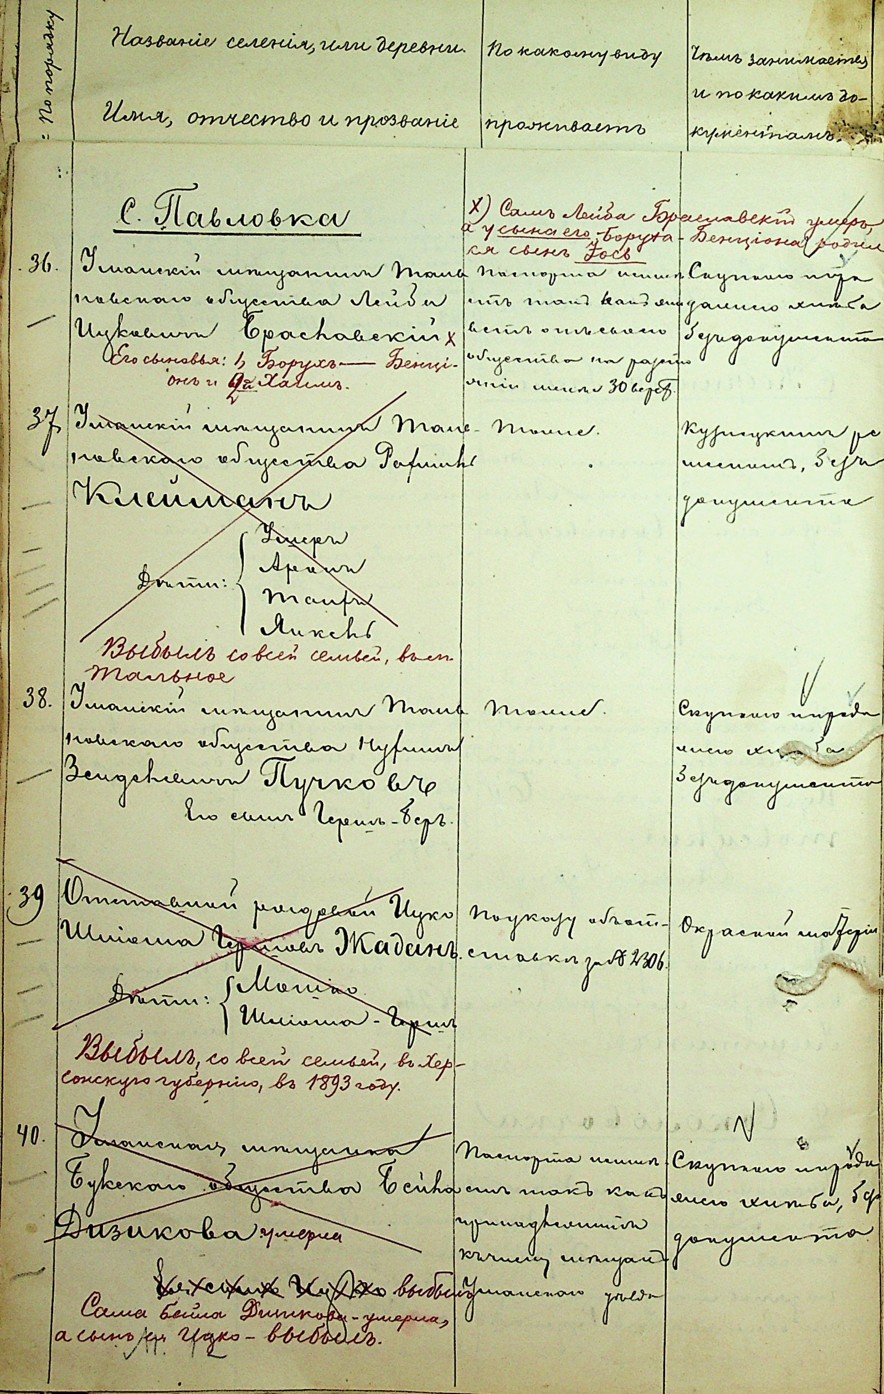 По порядку
Названіе селенія, или деревни.
Имя, отчество и прозваніе
По какому виду
проживаетъ
Чѣмъ занимается
и по какимъ до-
кументамъ.
С. Павловка
х) Самъ Лейба Браславскій умеръ,
а у сына его Боруха-Бенціона родил
ся сынъ Іось
36.
Уманскій мѣщанинъ Таль
новскаго общества Лейба
Ицковичъ Браславскій х
Его сыновья: 1, Борухъ — Бенці-
онъ и 2й Хаимъ.
Паспорта не имѣ
етъ такъ какъ
отъ своего
общества на разсто
яніи менѣе 30 верстъ.
Скупкою и про
дажею хлѣба
безъ документа
37
Уманскій мѣщанинъ Таль-
новскаго общества Рафаилъ
Клейманъ
Дѣти:
Умеръ
Аронъ
Янкель
Выбылъ со всей семьей, въ м.
Тальное
Тоже.
Кузнецкимъ ре
месломъ, безъ
документа
38.
Уманскій мѣщанинъ Таль
новскаго общества Нухимъ
Зейделевичъ Пучковъ
Его сынъ Гершъ-Беръ.
Тоже.
Скупкою и прода
жею хлѣба
безъ документа
39
Отставной рядовой Ицко
Шліома Гершовъ Жаданъ.
Дѣти:
Мотио
Шліома-Гершъ
Выбылъ, со всей семьей, въ Хер-
сонскую губернію, въ 1893 году.
По указу объ от-
ставкѣ за № 2306.
Окраской матерій
40.
Уманская мѣщанка
Букскаго общества Бейла
Дизикова умерла
Ея сынъ Ицко выбылъ
Сама Бейла Дизикова-умерла,
а сынъ ея Ицко-выбылъ.
Паспорта не имѣ-
етъ такъ какъ
принадлежитъ
къ числу мѣщанъ
Уманскаго уѣзда
Скупкою и прода
жею хлѣба, безъ
документа